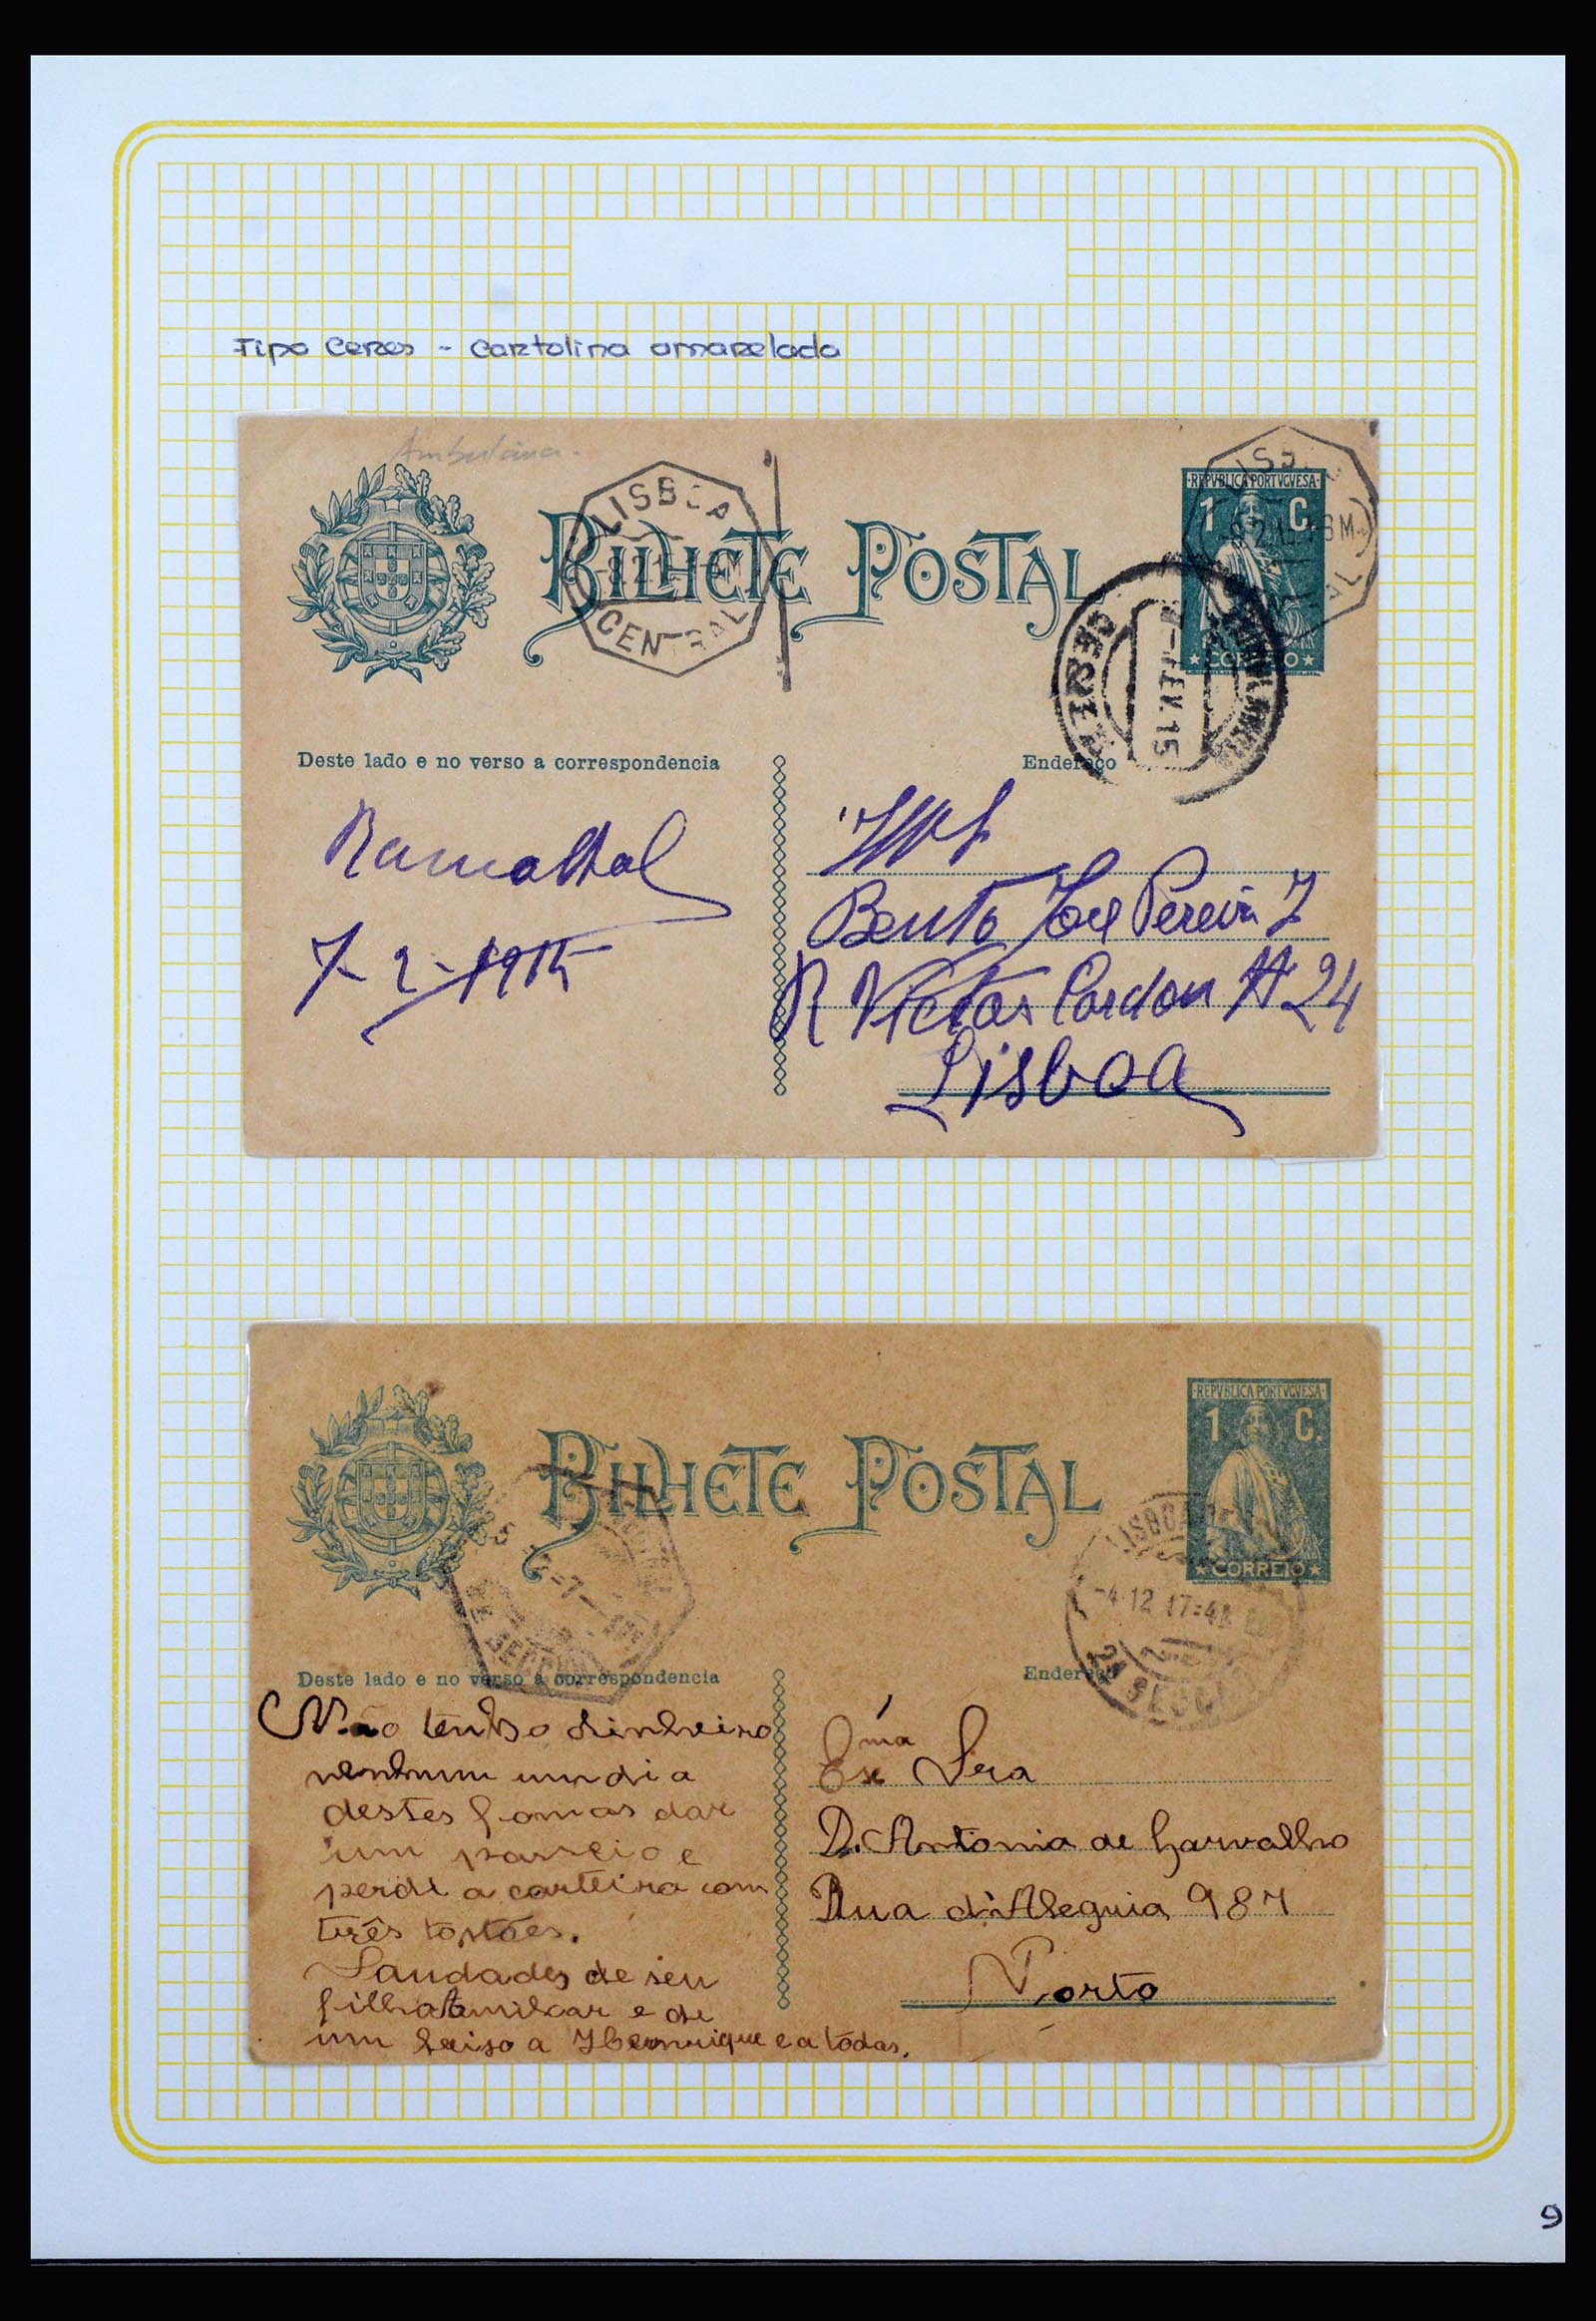 Tipo Ceres - cartolina amarelada
Ambulancia.
LISBOA
CENTRAL
BILHETE POSTAL
REPVBLICA PORTVGVESA
1 C.
CORREIO
OESTE
7 FEV. 15
Deste lado e no verso a correspondencia
Endereço
Ramalhal
7-2-1915
Bento José Pereira J
R Victor Cordon 24
Lisboa
BILHETE POSTAL
REPUBLICA PORTVGVESA
1 C.
CORREIO
LISBOA
-4-12 17=4
2ª SECÇ
SECÇ
Deste lado e no verso a correspondencia
Endereço
Não tenho dinheiro
nenhum um dia
destes fomos dar
um passeio e
perdi a carteira com
três tostões.
Saudades de seu
filho Amilcar e de
um beijo a Henrique e a todas.
Exma Sra
D. Antonia de Carvalho
Rua d'Alegria 987
Porto
9